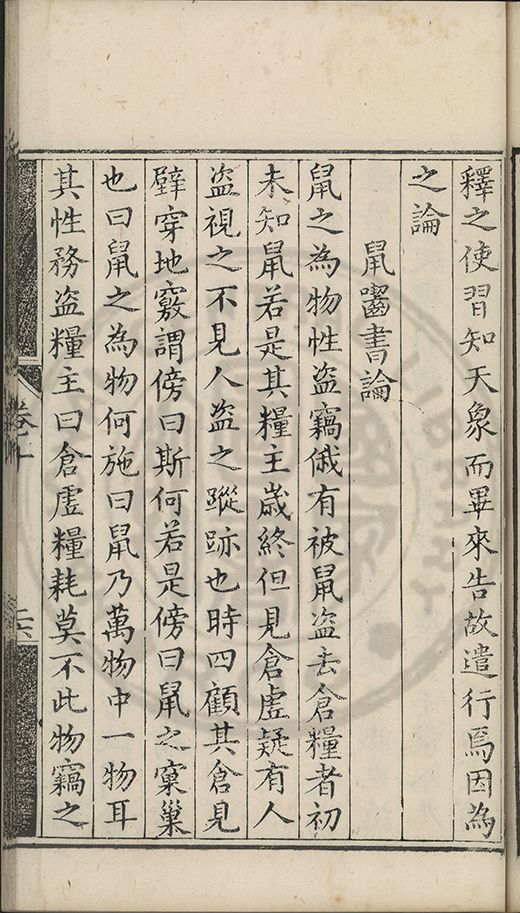 釋之使習知天象而畢來告故遣行焉因為
之論
鼠嚙書論
鼠之為物性盜竊俄有被鼠盜去倉糧者初
未知鼠若是其糧主歲終但見倉虛疑有人
盜視之不見人盜之蹤跡也時四顧其倉見
壁穿地竅謂傍曰斯何若是傍曰鼠之窠巢
也曰鼠之為物何施曰鼠乃萬物中一物耳
其性務盜糧主曰倉虛糧耗莫不此物竊之
卷十